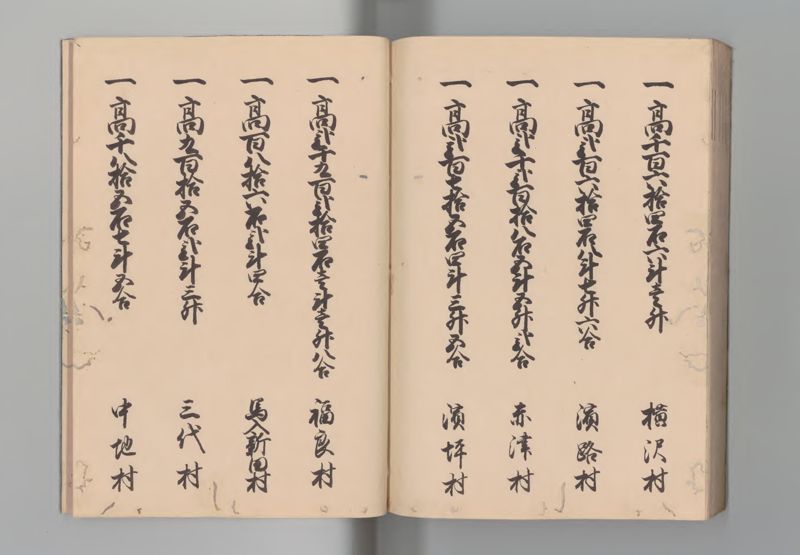 一高千百六拾四石六斗壱升 横沢村
一高弐百六拾四石八斗七升六合 濱路村
一高弐千弐百拾八石五斗五升弐合 赤津村
一高弐百七拾五石四斗三升五合 濱坪村
一高弐千九百弐拾四石壱斗壱升八合 福良村
一高百八拾六石弐斗四合 馬入新田村
一高九百拾五石弐斗三升 三代村
一高千八拾五石七斗五合 中地村